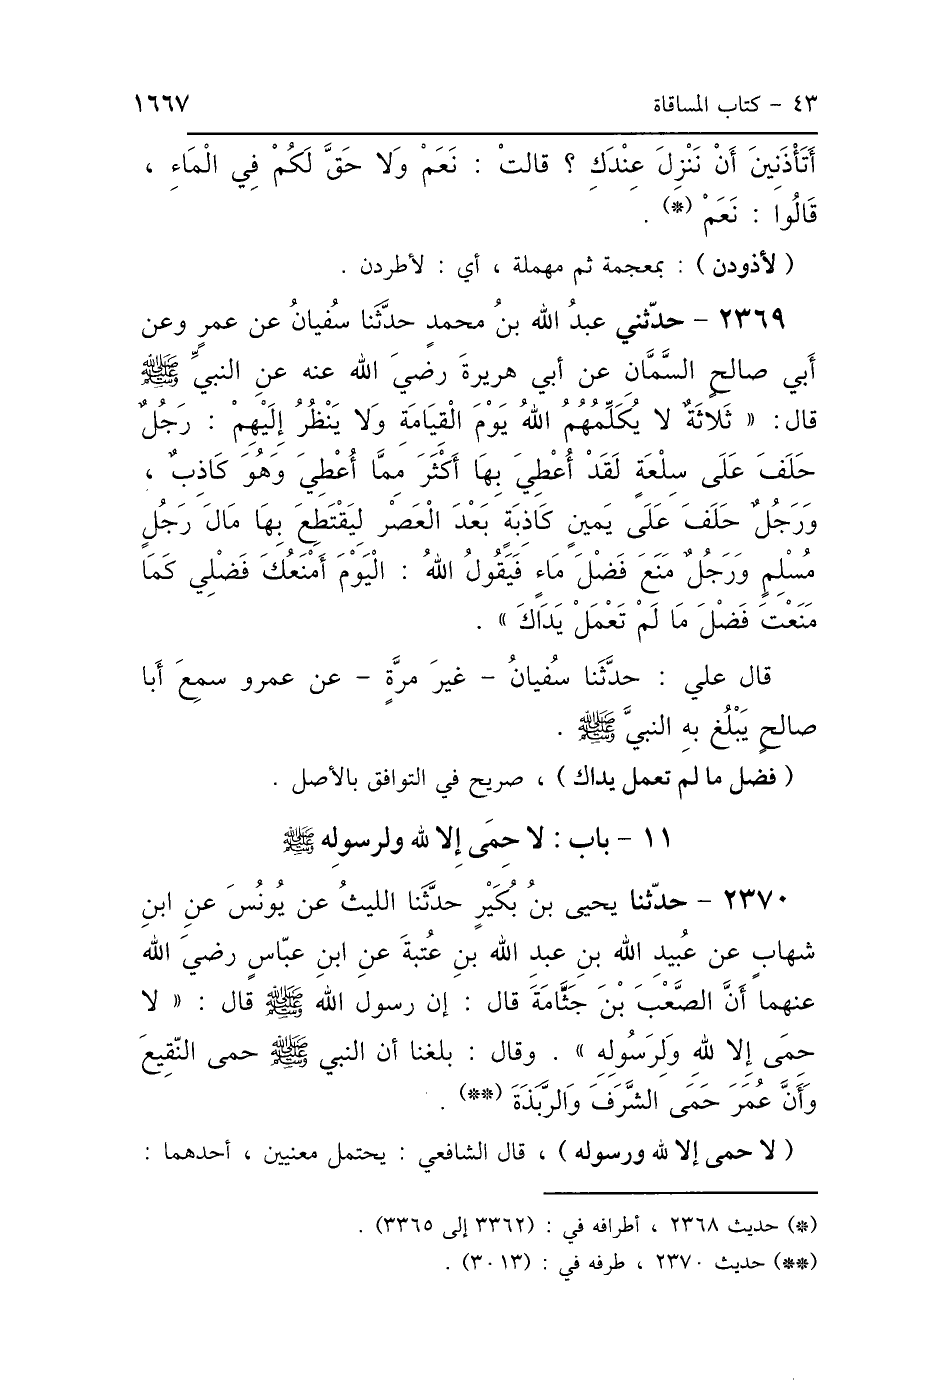 ٤٣ - كتاب المساقاة ١٦٦٧
أَتَأْذَنِينَ أَنْ نَنْزِلَ عِنْدَكِ ؟ قالتْ : نَعَمْ وَلا حَقَّ لَكُمْ فِي الْمَاءِ ،
قَالُوا : نَعَمْ (*) .
( لأذودن ) : بمعجمة ثم مهملة ، أي : لأطردن .
٢٣٦٩ - حدّثني عبدُ الله بنُ محمدٍ حدَّثَنا سفُيانُ عن عمرٍ وعن
أَبي صالحٍ السَّمَّانِ عن أبي هريرةَ رضيَ الله عنه عنِ النبيِّ ﷺ
قال: « ثَلاثَةٌ لا يُكَلِّمُهُمُ اللهُ يَوْمَ الْقِيَامَةِ وَلا يَنْظُرُ إِلَيْهِمْ : رَجُلٌ
حَلَفَ عَلَى سِلْعَةٍ لَقَدْ أُعْطِيَ بِهَا أَكْثَرَ مِمَّا أُعْطِيَ وَهُوَ كَاذِبٌ ،
وَرَجُلٌ حَلَفَ عَلَى يَمينٍ كَاذِبَةٍ بَعْدَ الْعَصْرِ لِيَقْتَطِعَ بِهَا مَالَ رَجُلٍ
مُسْلِمٍ وَرَجُلٌ مَنَعَ فَضْلَ مَاءٍ فَيَقُولُ اللهُ : الْيَوْمَ أَمْنَعُكَ فَضْلِي كَمَا
مَنَعْتَ فَضْلَ مَا لَمْ تَعْمَلْ يَدَاكَ » .
قال علي : حدَّثَنا سفُيانُ - غيرَ مرَّةٍ - عن عمرو سمِعَ أَبا
صالحٍ يَبْلُغ بهِ النبيَّ ﷺ .
( فضل ما لم تعمل يداك ) ، صريح في التوافق بالأصل .
١١ - باب : لا حِمَى إِلا لله ولرسولِه ﷺ
٢٣٧٠ - حدّثنا يحيى بنُ بُكَيْرٍ حدَّثَنا الليثُ عن يُونُسَ عنِ ابنِ
شهابٍ عن عُبيدِ الله بنِ عبدِ الله بنِ عُتبةَ عنِ ابنِ عبّاسٍ رضيَ الله
عنهما أَنَّ الصَّعْبَ بْنَ جَثَّامَةَ قال : إن رسول الله ﷺ قال : « لا
حِمَى إِلا للهِ وَلِرَسُولِهِ » . وقال : بلغنا أن النبي ﷺ حمى النّقِيعَ
وَأَنَّ عُمَرَ حَمَى الشَّرَفَ وَالرَّبَذَةَ (**) .
( لا حمى إلا لله ورسوله ) ، قال الشافعي : يحتمل معنيين ، أحدهما :
(*) حديث ٢٣٦٨ ، أطرافه في : (٣٣٦٢ إلى ٣٣٦٥) .
(**) حديث ٢٣٧٠ ، طرفه في : (٣٠١٣) .